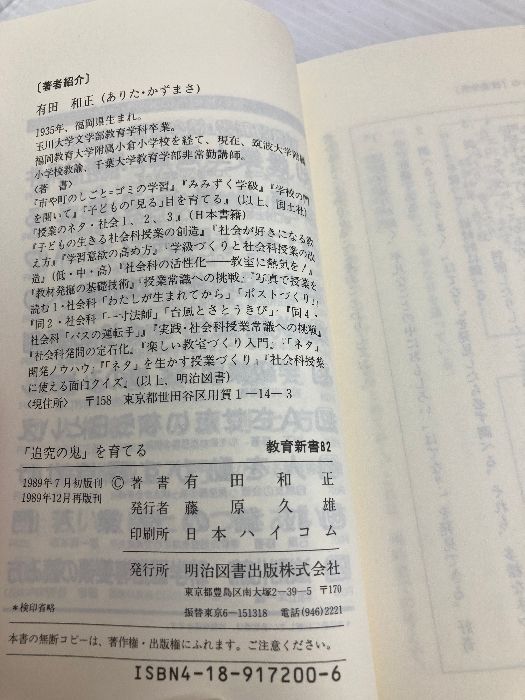 〔著者紹介〕
有田 和正（ありた・かずまさ）
1935年、福岡県生まれ。
玉川大学文学部教育学科卒業。
福岡教育大学附属小倉小学校を経て、現在、筑波大学附属
小学校教諭、千葉大学教育学部非常勤講師。
〈著 書〉
『市や町のしごと＝ゴミの学習』『みみずく学級』『学校の門
を開いて』『子どもの「見る」目を育てる』（以上、国土社）
『授業のネタ・社会1、2、3』（日本書籍）
『子どもの生きる社会科授業の創造』『社会が好きになる教
え方』『学習意欲の高め方』『学級づくりと社会科授業の改
造』（低・中・高）『社会科の活性化――教室に熱気を！』
『教材発掘の基礎技術』『授業常識への挑戦』『写真で授業を
読む1・社会科「わたしが生まれてから」「ポストづくり」』
『同2・社会科「一寸法師」「台風とさとうきび」』『同4・
社会科「バスの運転手」』『実践・社会科授業常識への挑戦』
『社会科発問の定石化』『楽しい教室づくり入門』『「ネタ」
開発ノウハウ』『「ネタ」を生かす授業づくり』『社会科授業
に使える面白クイズ』（以上、明治図書）
〈現住所〉 〒158 東京都世田谷区用賀1－14－3
「追究の鬼」を育てる 教育新書82
1989年7月初版刊
1989年12月再版刊
Ⓒ著 者 有田和正
発行者 藤原久雄
印刷所 日本ハイコム
発行所 明治図書出版株式会社
東京都豊島区南大塚2－39－5 〒170
＊検印省略 振替東京6－151318 電話(946)2221
本書の無断コピーは、著作権・出版権にふれます。ご注意ください。
ISBN4-18-917200-6